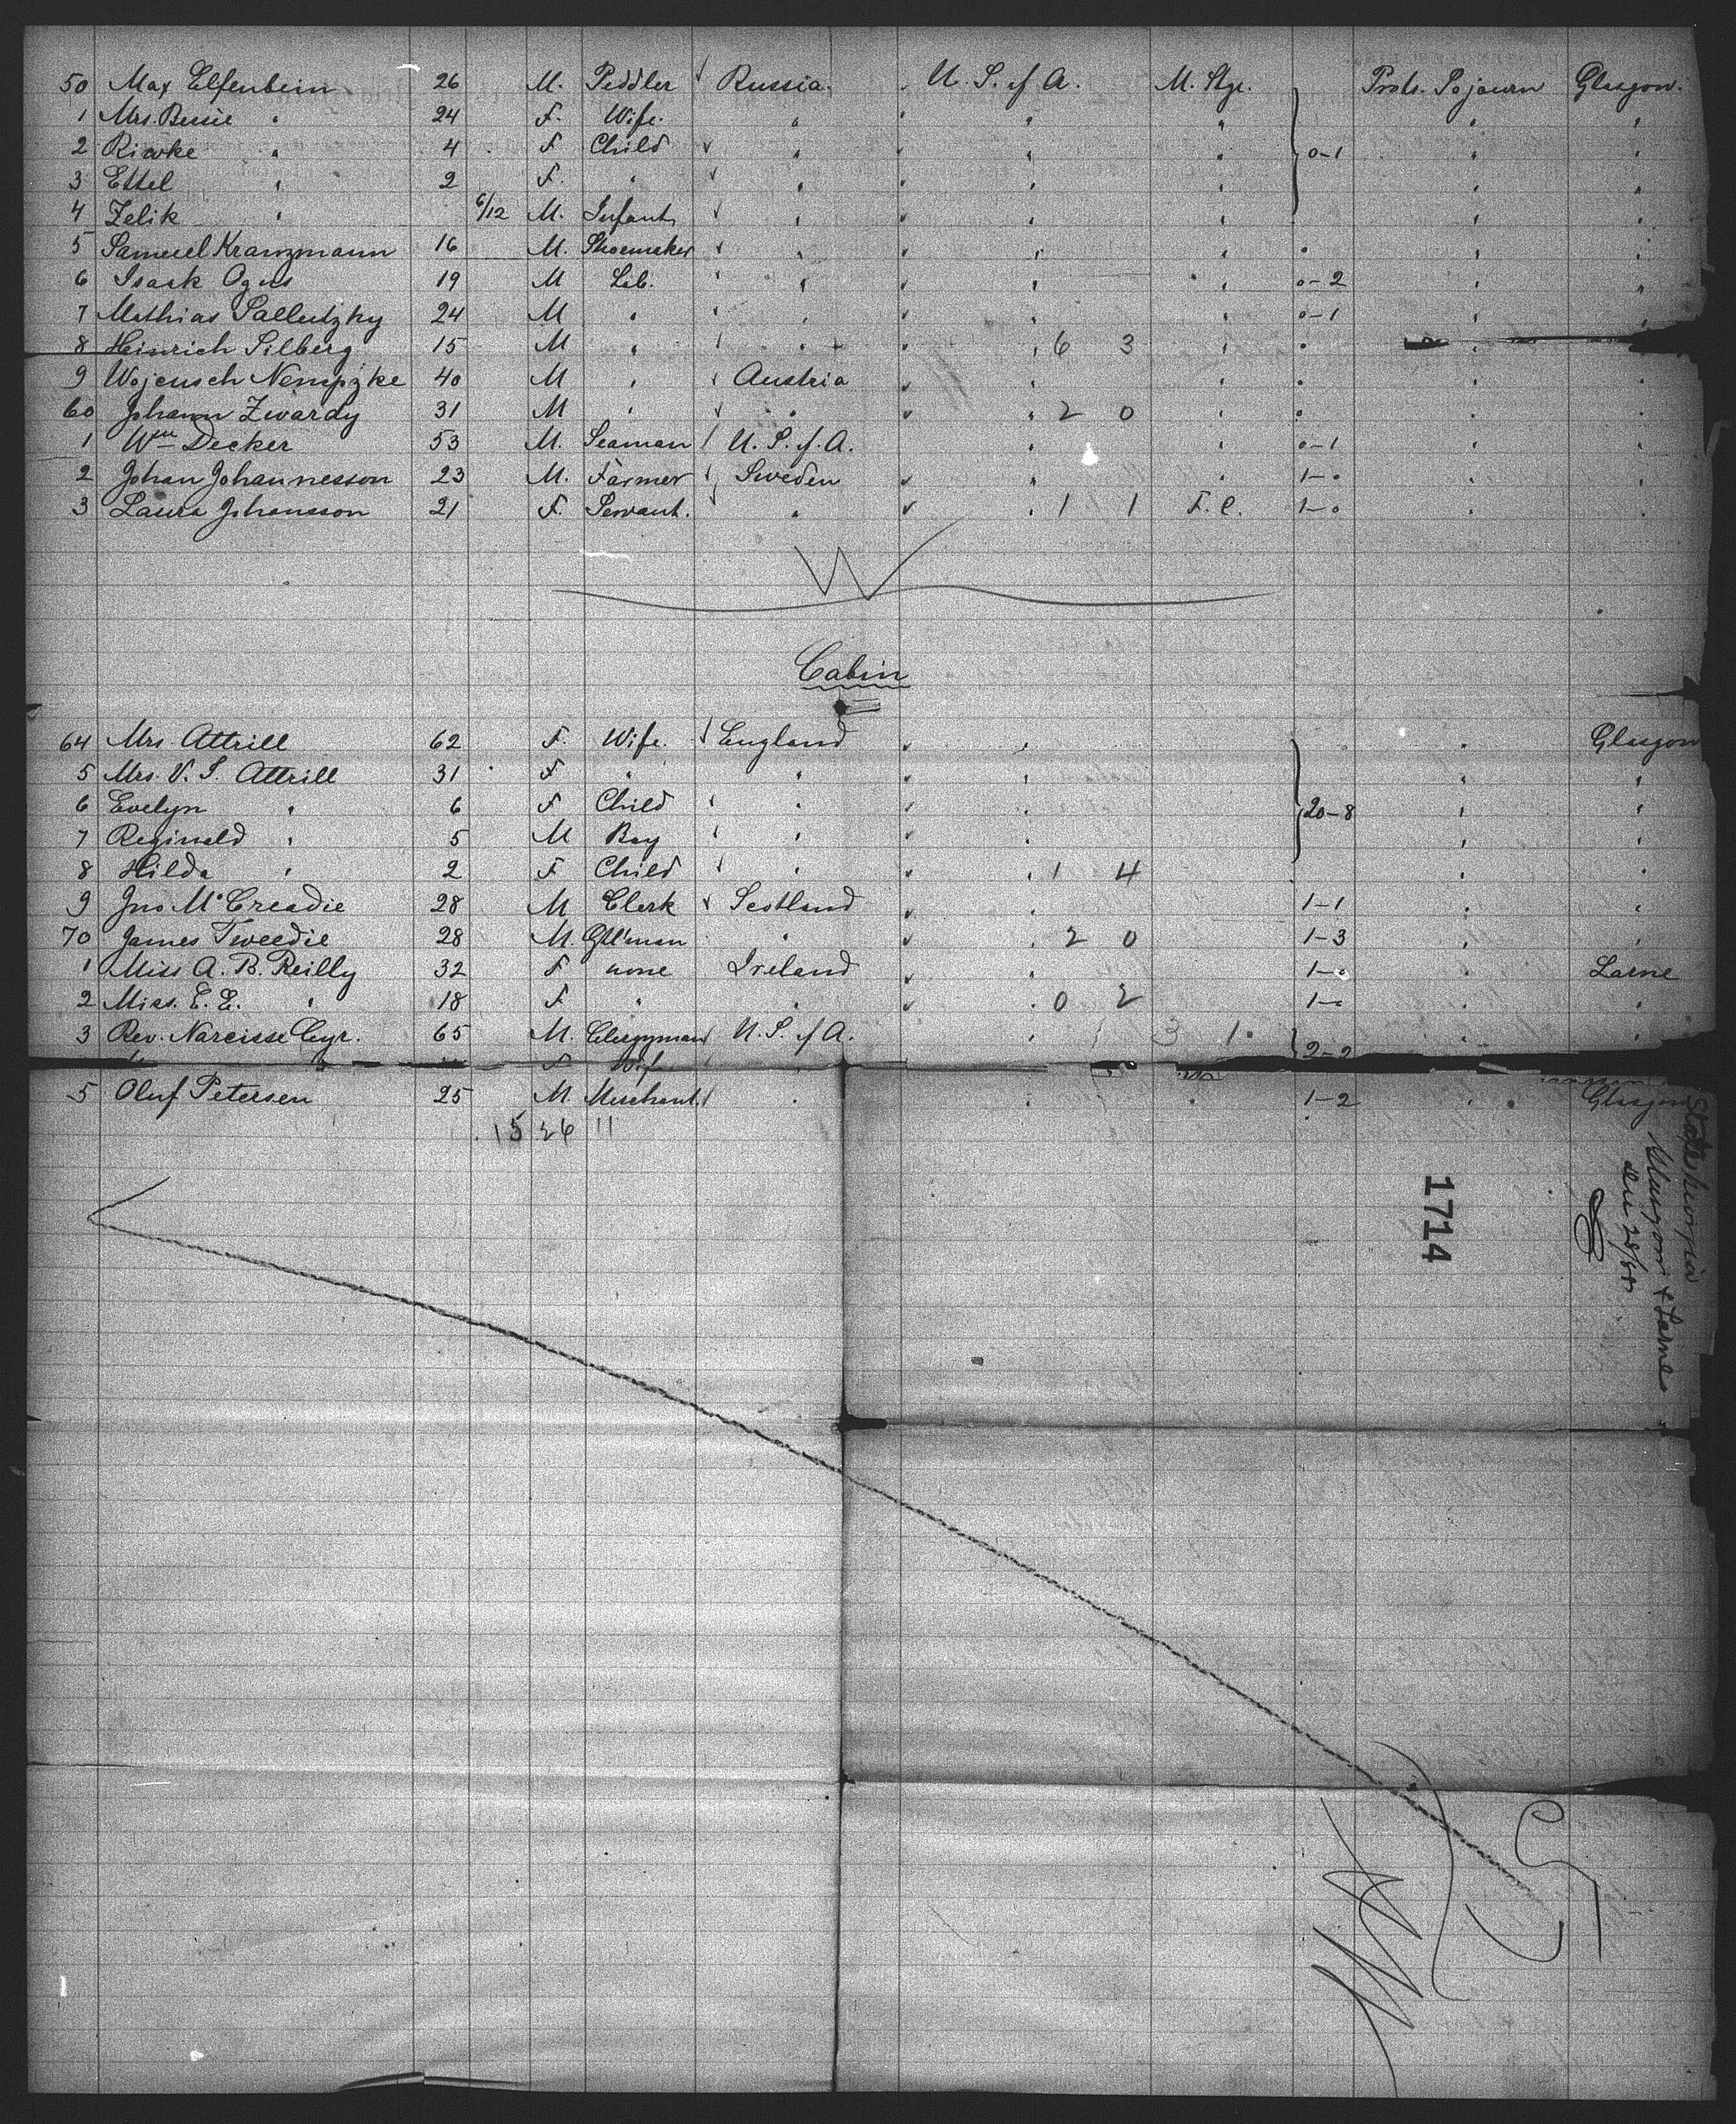 50 Max Elfenbein 26 M. Peddler Russia. U. S. of A. M. Stge. Prot. Sojourn Glasgow.
1 Mrs. Bessie " 24 F. Wife. " " " " "
2 Riwke " 4 F Child " " " 0-1 " "
3 Ettel " 2 F. " " " " " "
4 Zelik " 6/12 M. Infant " " " " "
5 Samuel Kranzmann 16 M. Shoemaker " " " " "
6 Isaak Ogus 19 M Lab. " " " 0-2 " "
7 Mathias Sallutzky 24 M " " " " 0-1 " "
8 Heinrich Silberg 15 M " " " 6 3 " " "
9 Wojensch Nempzke 40 M " Austria " " " "
60 Johann Zwardy 31 M " " " 2 0 " " "
1 Wm Decker 53 M. Seaman U. S. of A. " " 0-1 " "
2 Johan Johannesson 23 M. Farmer Sweden " " 1-0 " "
3 Laura Johansson 21 F. Servant. " " 1 1 F. C. 1-0 " "
Cabin
64 Mrs. Attrill 62 F. Wife. England " " Glasgow
5 Mrs. V. S. Attrill 31 F " " " " "
6 Evelyn " 6 F Child " " 20-8 " "
7 Reginald " 5 M Boy " " " "
8 Hilda " 2 F Child " " 1 4 " "
9 Jno McCreadie 28 M Clerk Scotland " 1-1 " "
70 James Tweedie 28 M. Gtl'man " " 2 0 1-3 " "
1 Miss A. B. Reilly 32 F none Ireland " 1-0 " Larne
2 Miss. E. E. " 18 F. " " " 0 2 1-0 " "
3 Rev. Narcisse Cyr. 65 M. Clergyman U. S. of A. " 3 1 2-2 " "
F Wife
5 Oluf Petersen 25 M Merchant. " " " 1-2 " Glasgow
15 26 11
1714
Glasgow & Larne